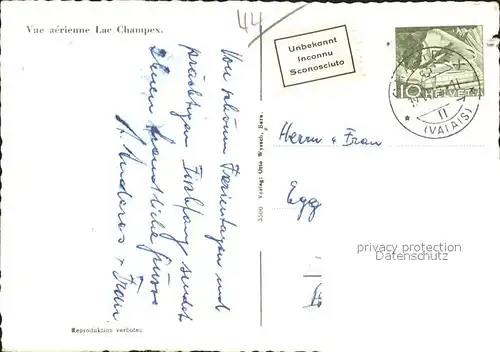 Vue aérienne Lac Champex.
44
Unbekannt
Inconnu
Sconosciuto
10 HELVETIA
(VALAIS)
Von schönen Ferientagen und
prächtigem Fischfang sendet
Ihnen freundliche Grüsse
A. Anderes + Frau
Herrn & Frau
Egg
privacy protection
Datenschutz
3500 Verlag: Otto Bern.
Reproduktion verboten